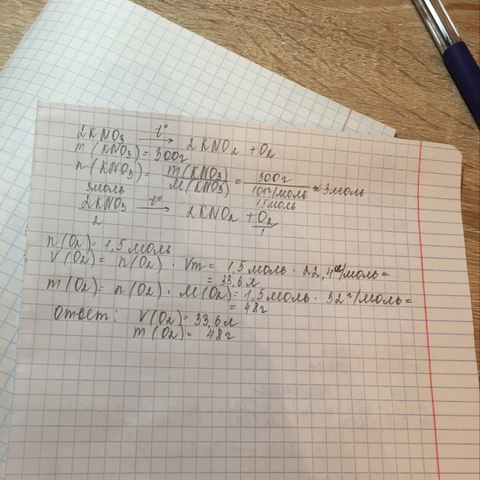 2KNO₃ —t°→ 2KNO₂ + O₂
m(KNO₃) = 300г
n(KNO₃) = m(KNO₃)/M(KNO₃) = 300г/101г/моль ≈ 3моль
3моль 1,5моль
2KNO₃ —t°→ 2KNO₂ + O₂
2 1
n(O₂) = 1,5 моль
V(O₂) = n(O₂) · Vm = 1,5моль · 22,4л/моль =
= 33,6л
m(O₂) = n(O₂) · M(O₂) = 1,5моль · 32г/моль =
= 48г
Ответ: V(O₂) = 33,6л
m(O₂) = 48г